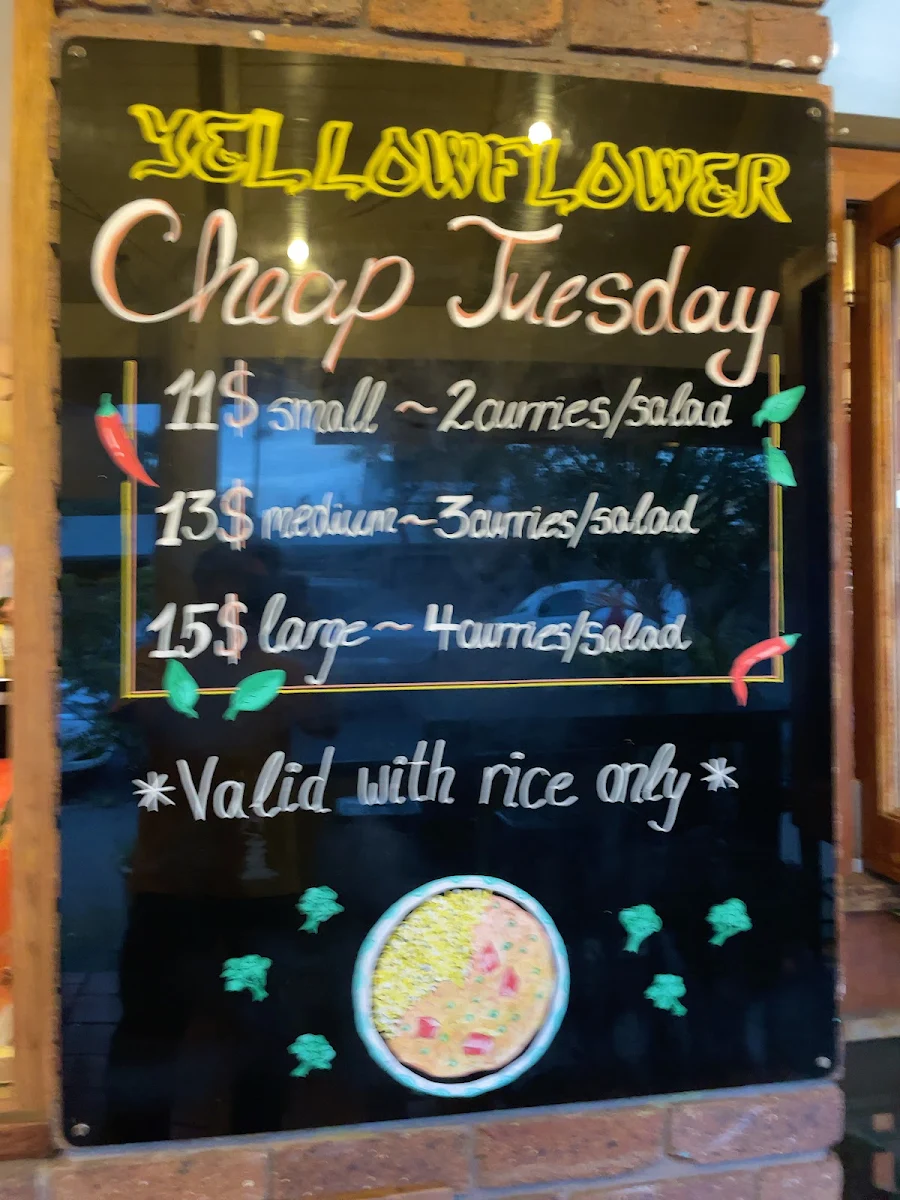 YELLOWFLOWER
Cheap Tuesday
11$ small ~ 2curries/salad
13$ medium ~ 3curries/salad
15$ large ~ 4curries/salad
*Valid with rice only*